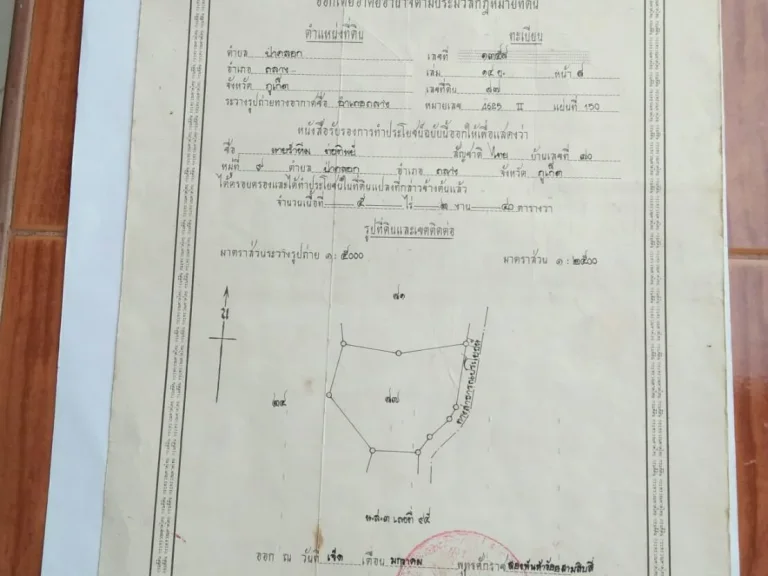 ออกโดยอาศัยอำนาจตามประมวลกฎหมายที่ดิน
ตำแหน่งที่ดิน
ตำบล ป่าคลอก
อำเภอ ถลาง
จังหวัด ภูเก็ต
ระวางรูปถ่ายทางอากาศชื่อ อำเภอถลาง
ทะเบียน
เลขที่ ๑๓๕๗
เล่ม ๑๔ ข. หน้า ๗
เลขที่ดิน ๗๗
หมายเลข II แผ่นที่ ๑๖๐
หนังสือรับรองการทำประโยชน์ฉบับนี้ออกให้เพื่อแสดงว่า
ชื่อ สัญชาติ ไทย บ้านเลขที่ ๗๐
หมู่ที่ ๙ ตำบล ป่าคลอก อำเภอ ถลาง จังหวัด ภูเก็ต
ได้ครอบครองและได้ทำประโยชน์ในที่ดินแปลงที่กล่าวข้างต้นแล้ว
จำนวนเนื้อที่ ๕ ไร่ ๒ งาน ๔๐ ตารางวา
รูปที่ดินและเขตติดต่อ
มาตราส่วนระวางรูปถ่าย ๑ : ๕๐๐๐
มาตราส่วน ๑ : ๒๕๐๐
๗๑
น
ทางสาธารณประโยชน์
๒๔
๗๗
น.ส.๓ เลขที่ ๔๕
ออก ณ วันที่ เจ็ด เดือน มกราคม พุทธศักราช สองพันห้าร้อยสามสิบสี่